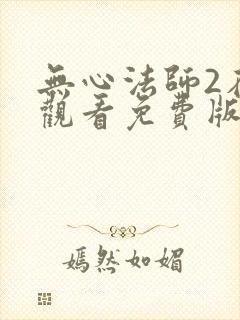 無心法師2
觀看免費版
嫣然如媚